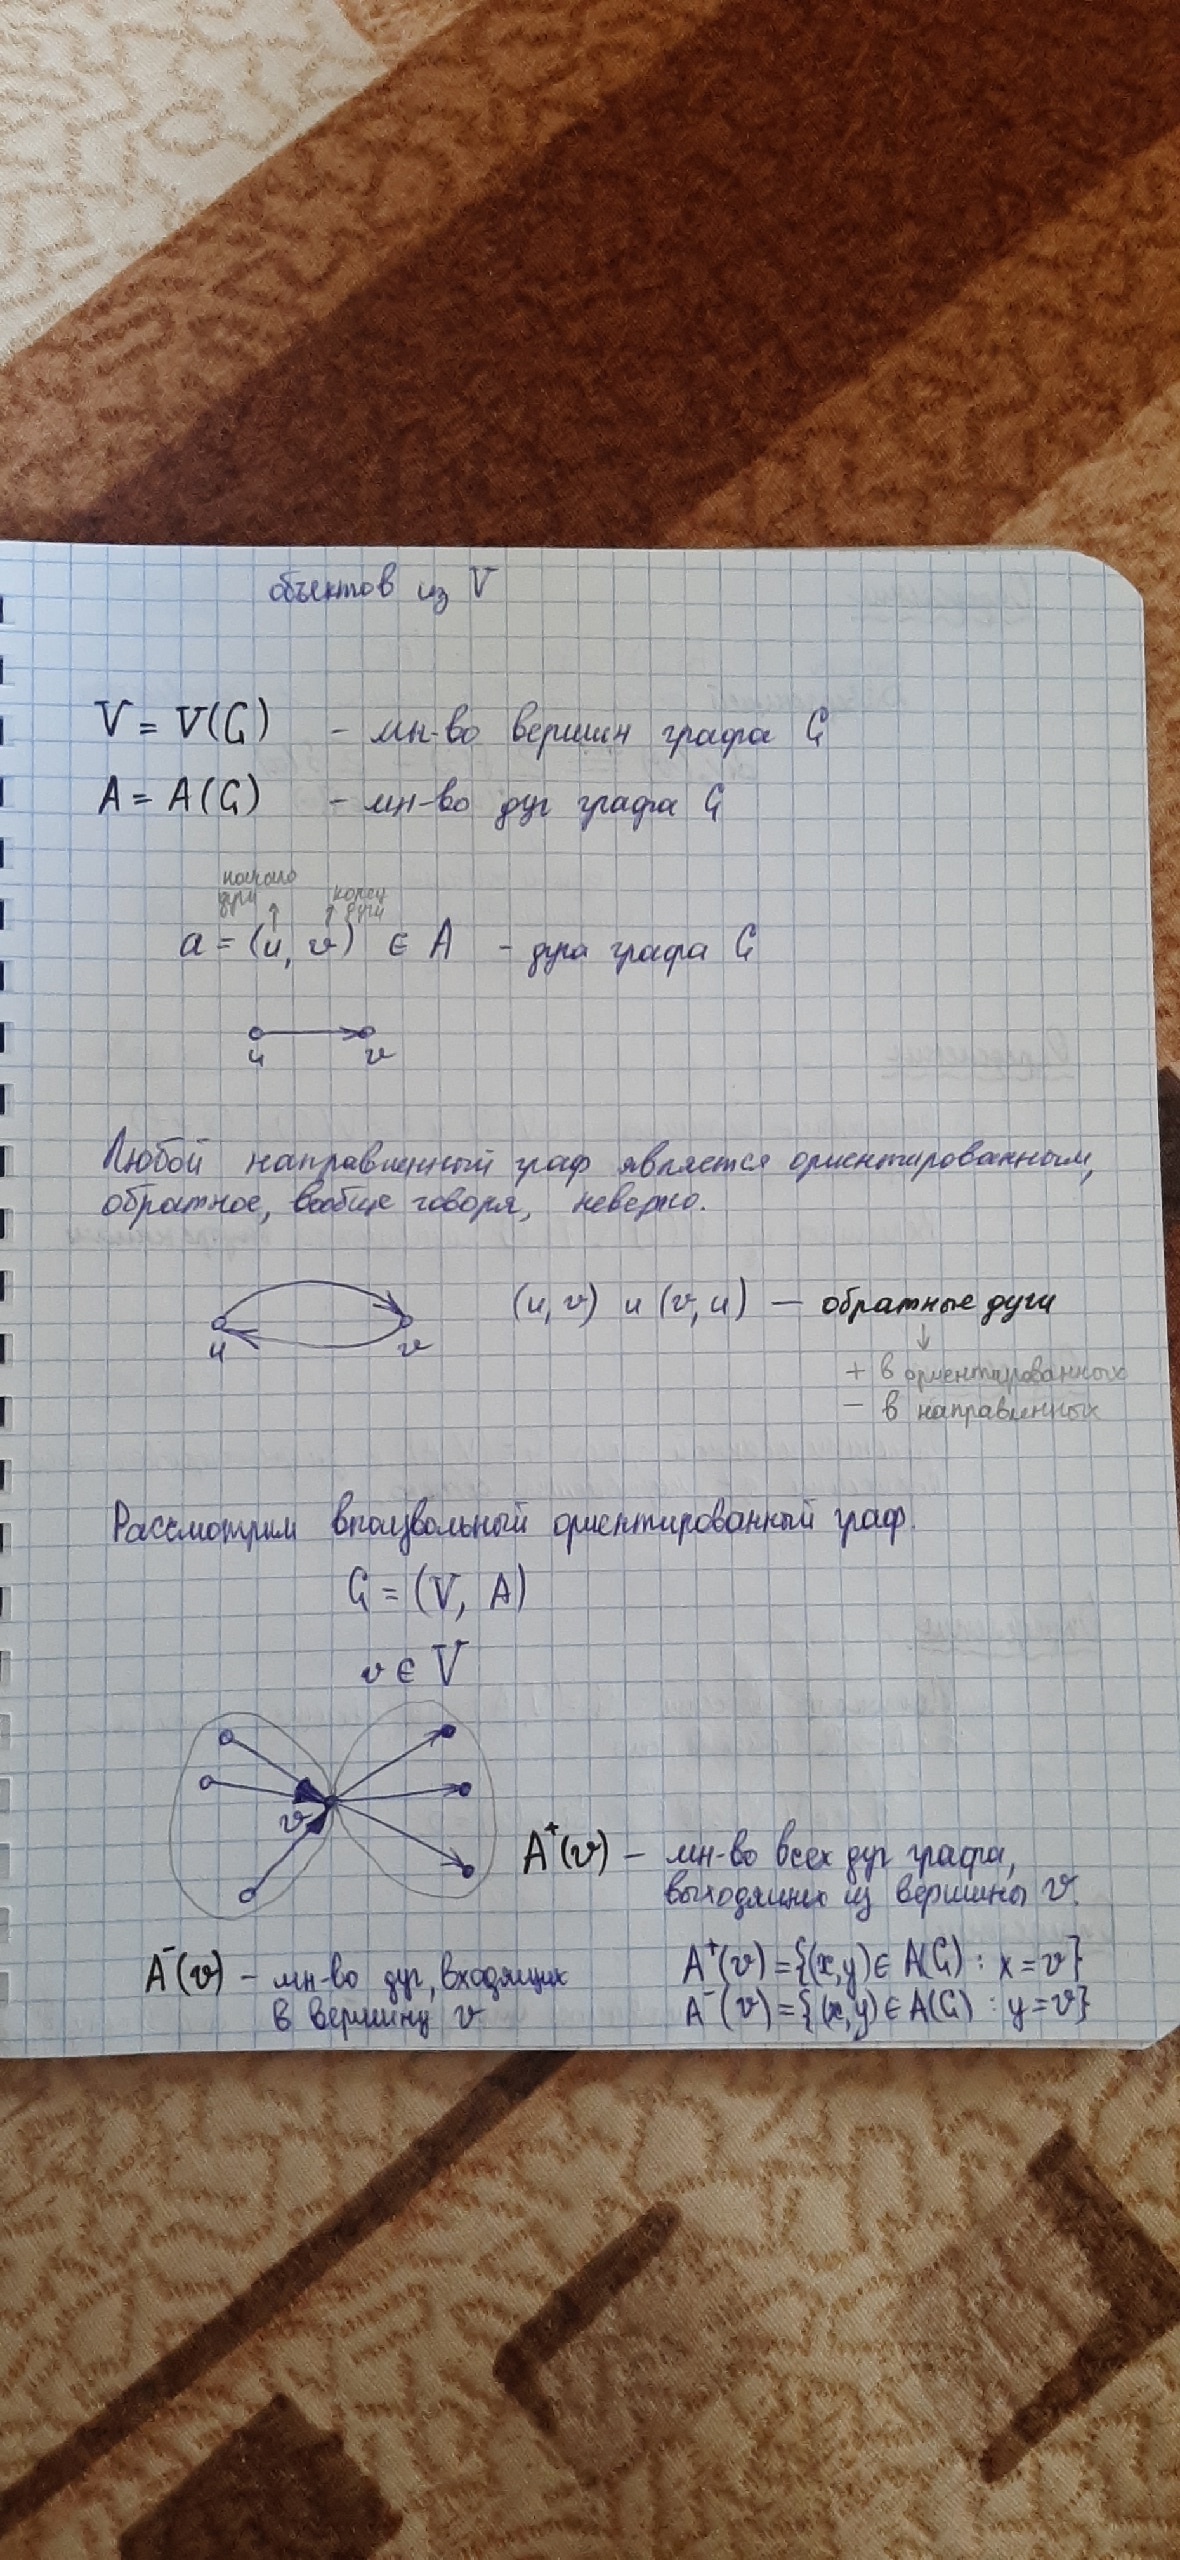 объектов из V
V = V(G) - мн-во вершин графа G
A = A(G) - мн-во дуг графа G
начало дуги
конец дуги
a = (u, v) ∈ A - дуга графа G
u v
Любой направленный граф является ориентированным,
обратное, вообще говоря, неверно.
(u, v) и (v, u) — обратные дуги
u v
+ в ориентированных
- в направленных
Рассмотрим произвольный ориентированный граф.
G = (V, A)
v ∈ V
v
A⁺(v) - мн-во всех дуг графа,
выходящих из вершины v.
A⁻(v) - мн-во дуг, входящих
в вершину v
A⁺(v) = {(x,y) ∈ A(G) : x = v}
A⁻(v) = {(x,y) ∈ A(G) : y = v}